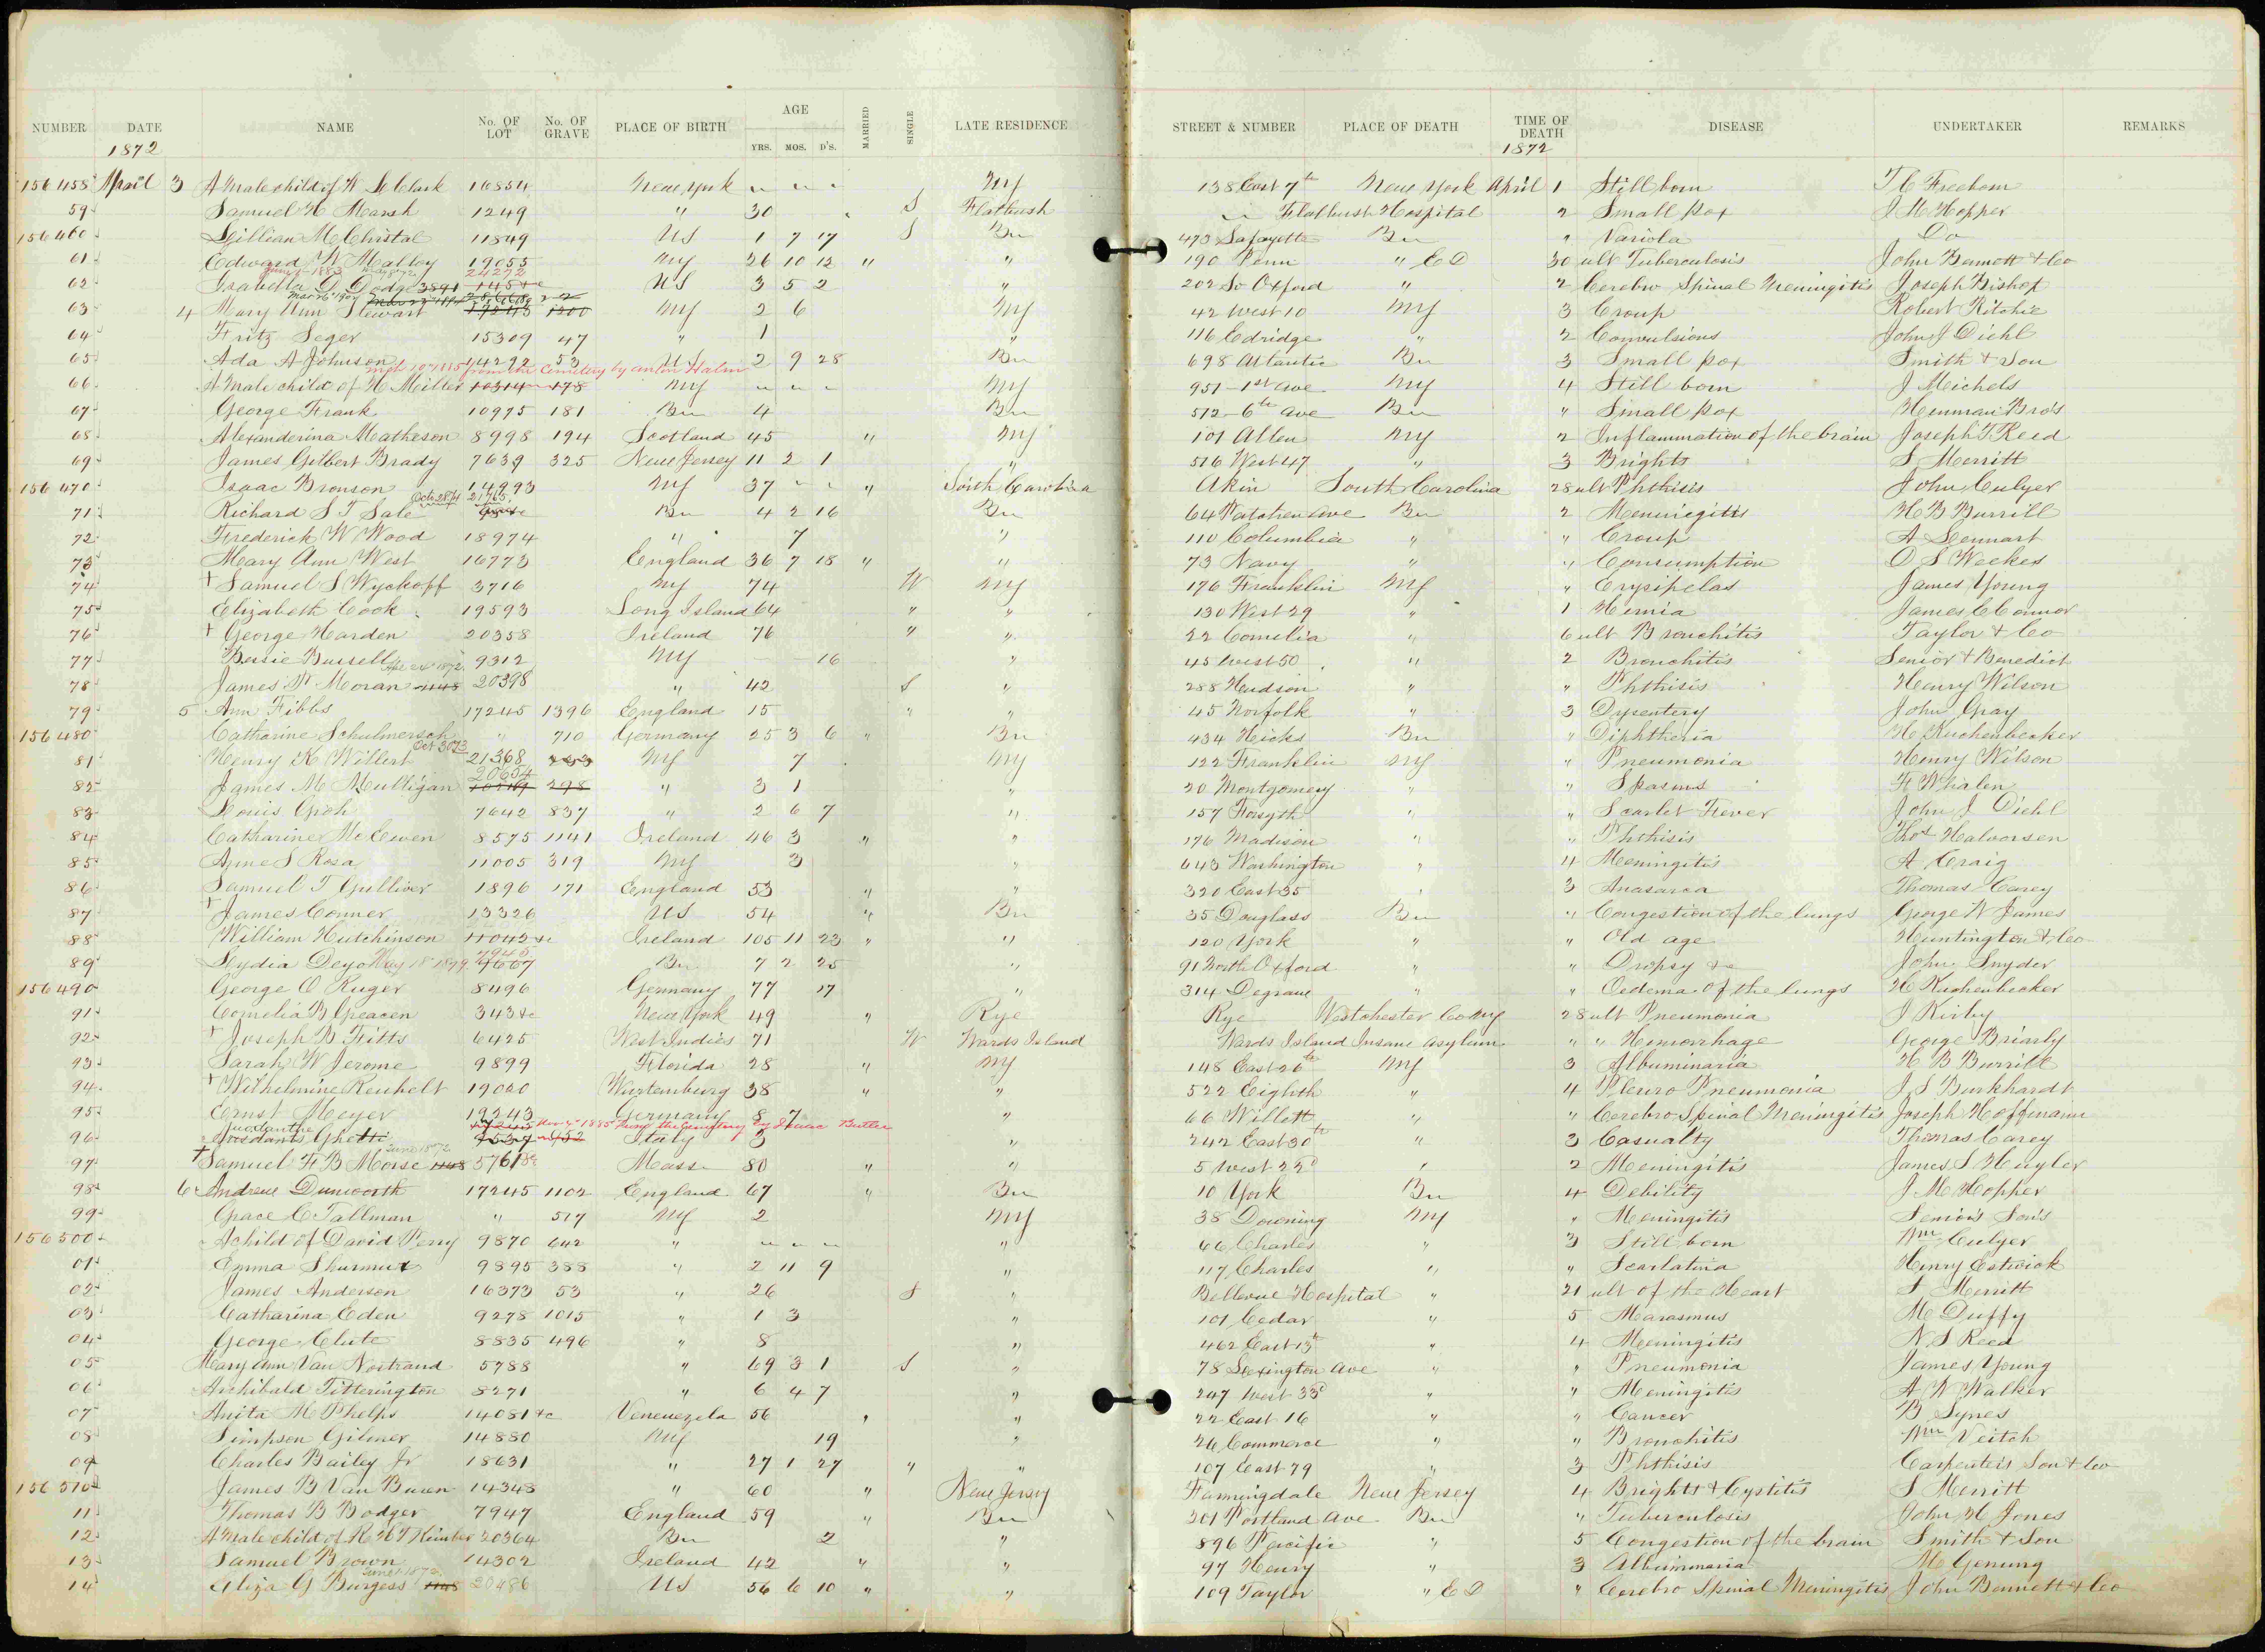 NUMBER DATE NAME No. OF LOT No. OF GRAVE PLACE OF BIRTH AGE YRS. MOS. D'S. MARRIED SINGLE LATE RESIDENCE STREET & NUMBER PLACE OF DEATH TIME OF DEATH DISEASE UNDERTAKER REMARKS
1872 1872
156458 April 3 A Male child of W Clark 16854 New York " " " NY 138 East 7th New York April 1 Still born Freeborn
59 Samuel H Marsh 1249 " 30 S Flatbush " Flatbush Hospital 2 Small pox J M Hopper
156460 Lillian McChristal 11849 US 1 7 17 S Bn 473 Lafayette Bn " Variola Do
61 Edward W Malloy 19055 NY 26 10 12 " " 190 Penn " E D 30 ult Tuberculosis John Bennett & Co
62 Isabella D Dodge 24272 US 3 5 2 " 202 So Oxford " 2 Cerebro Spinal Meningitis Joseph Bishop
63 4 Mary Ann Stewart NY 2 6 NY 42 West 10 NY 3 Croup Robert Ritchie
64 Fritz Seger 15309 47 " 1 " 116 Eldridge " 2 Convulsions John J Diehl
65 Ada A Johnson 14292 53 US 2 9 28 Bn 698 Atlantic Bn 3 Small pox Smith & Son
from the Cemetery by Anton Halm
66 A Male child of H Miller 10314 178 NY " " " NY 951 1st Ave NY 4 Still born J Meichels
67 George Frank 10975 181 Bn 4 Bn 512 6th Ave Bn " Small pox Henman Bros
68 Alexanderina Matheson 8998 194 Scotland 45 " NY 101 Allen NY 2 Inflammation of the brain Joseph T Reed
69 James Gilbert Brady 7639 325 New Jersey 11 2 1 " 516 West 47 " 3 Brights S Merritt
156470 Isaac Bronson 14993 NY 37 " " " South Carolina Akin South Carolina 28 ult Phthisis John Culyer
71 Richard S T Sale 21765 Bn 4 2 16 Bn 64 Patchen Ave Bn 2 Meningitis H B Burrill
72 Frederick W Wood 18974 " 7 " 110 Columbia " " Croup A Lennart
73 Mary Ann West 16773 England 36 7 18 " " 73 Navy " " Consumption O S Weekes
74 + Samuel S Wyckoff 3716 NY 74 W NY 176 Franklin NY " Erysipelas James Young
75 Elizabeth Cook 19593 Long Island 64 " " 130 West 29 " 1 Hernia James C Connor
76 + George Harden 20358 Ireland 76 " " 22 Cornelia " 6 ult Bronchitis Taylor & Co
77 Bessie Bussell 9312 NY 16 " 45 West 50 " 2 Bronchitis Senior & Benedict
78 James W Moran 20398 " 42 S " 288 Hudson " " Phthisis Henry Wilson
79 5 Ann Fibbs 17245 1396 England 15 " " 45 Norfolk " 3 Dysentery John Gray
156480 Catharine Schulmersch " 710 Germany 25 3 6 " Bn 434 Hicks Bn " Diphtheria H Kuchenbecker
81 Henry K Willert Oct 30 73 21368 NY 7 NY 122 Franklin NY " Pneumonia Henry Wilson
82 James M Mulligan 20654 298 " 3 1 " 20 Montgomery " " Spasms F Whalen
83 Louis Groh 7642 837 " 2 6 7 " 157 Forsyth " " Scarlet Fever John J Diehl
84 Catharine McEwen 8575 1141 Ireland 46 3 " " 176 Madison " " Phthisis Thos Halvorsen
85 Agnes S Rosa 11005 319 NY 3 " 643 Washington " 4 Meningitis A Craig
86 Samuel T Gulliver 1896 171 England 53 " " 320 East 35 " 3 Anasarca Thomas Carey
87 + James Conner 13326 US 54 " Bn 35 Douglass Bn " Congestion of the lungs George W James
88 William Hutchinson 11042 &c Ireland 105 11 23 " " 120 York " " Old age Huntington & Co
89 Lydia Deyo Bn 7 2 25 " 91 North Oxford " " Dropsy &c John Snyder
156490 George O Ruger 8496 Germany 77 17 " 314 Degraw " " Oedema of the lungs H Kuchenbecker
91 Cornelia B Greacen 343 &c New York 49 " Rye Rye Westchester Co NY 28 ult Pneumonia J Kirby
92 + Joseph B Fitts 6425 West Indies 71 W Wards Island Wards Island Insane Asylum " " Hemorrhage George Brierly
93 Sarah W Jerome 9899 Florida 28 " NY 148 East 26th NY 3 Albuminaria H B Burrill
94 + Wilhelmine Reuhelt 19020 Wurtemburg 38 " " 522 Eighth " 4 Pleuro Pneumonia J S Burkhardt
95 Ernst Meyer 19343 Germany 8 7 66 Willett " " Cerebro Spinal Meningitis Joseph Hoffmann
96 Ghetti Italy 3 " 242 East 30th " 3 Casualty Thomas Carey
97 + Samuel F B Morse 5761 &c Mass 80 " " 5 West 22d " 2 Meningitis James S Huyler
98 6 Andrew Dunworth 17245 1102 England 67 " Bn 10 York Bn 4 Debility J M Hopper
99 Grace C Tallman " 517 NY 2 NY 38 Downing NY " Meningitis Seniors Sons
156500 A child of David Perry 9870 642 " " " " " 66 Charles " 3 Still born Wm Culyer
01 Emma Shurmut 9895 388 " 2 11 9 " 117 Charles " " Scarlatina Henry Estwick
02 James Anderson 16373 53 " 26 S " Bellevue Hospital " 21 ult of the Heart S Merritt
03 Catharina Eden 9278 1015 " 1 3 " 101 Cedar " 5 Marasmus M Duffy
04 George Clute 8835 496 " 8 " 462 East 13th " 4 Meningitis N S Reed
05 Mary Ann Van Nostrand 5788 " 69 3 1 S " 78 Lexington Ave " " Pneumonia James Young
06 Archibald Titterington 8271 " 6 4 7 " 247 West 33d " " Meningitis A W Walker
07 Anita M Phelps 14081 &c Venenezela 56 " " 22 East 16 " " Cancer B Synes
08 Simpson Gilmer 14880 NY 19 " 26 Commerce " " Bronchitis Wm Veitch
09 Charles Bailey Jr 18631 " 27 1 27 " " 107 East 79 " 3 Phthisis Carpenters Son & Co
156510 James B Van Buren 14348 " 60 " New Jersey Farmingdale New Jersey 4 Brights & Cystitis S Merritt
11 Thomas B Bodger 7947 England 59 " Bn 301 Portland Ave Bn " Tuberculosis John H Jones
12 A Male child of 20364 Bn 2 " 896 Pacific " 5 Congestion of the brain Smith & Son
13 Samuel Brown 14302 Ireland 42 " " 97 Henry " 3 Albuminaria M Genung
14 Eliza G Burgess 20486 US 56 6 10 " " 109 Taylor " E D " Cerebro Spinal Meningitis John Bennett & Co